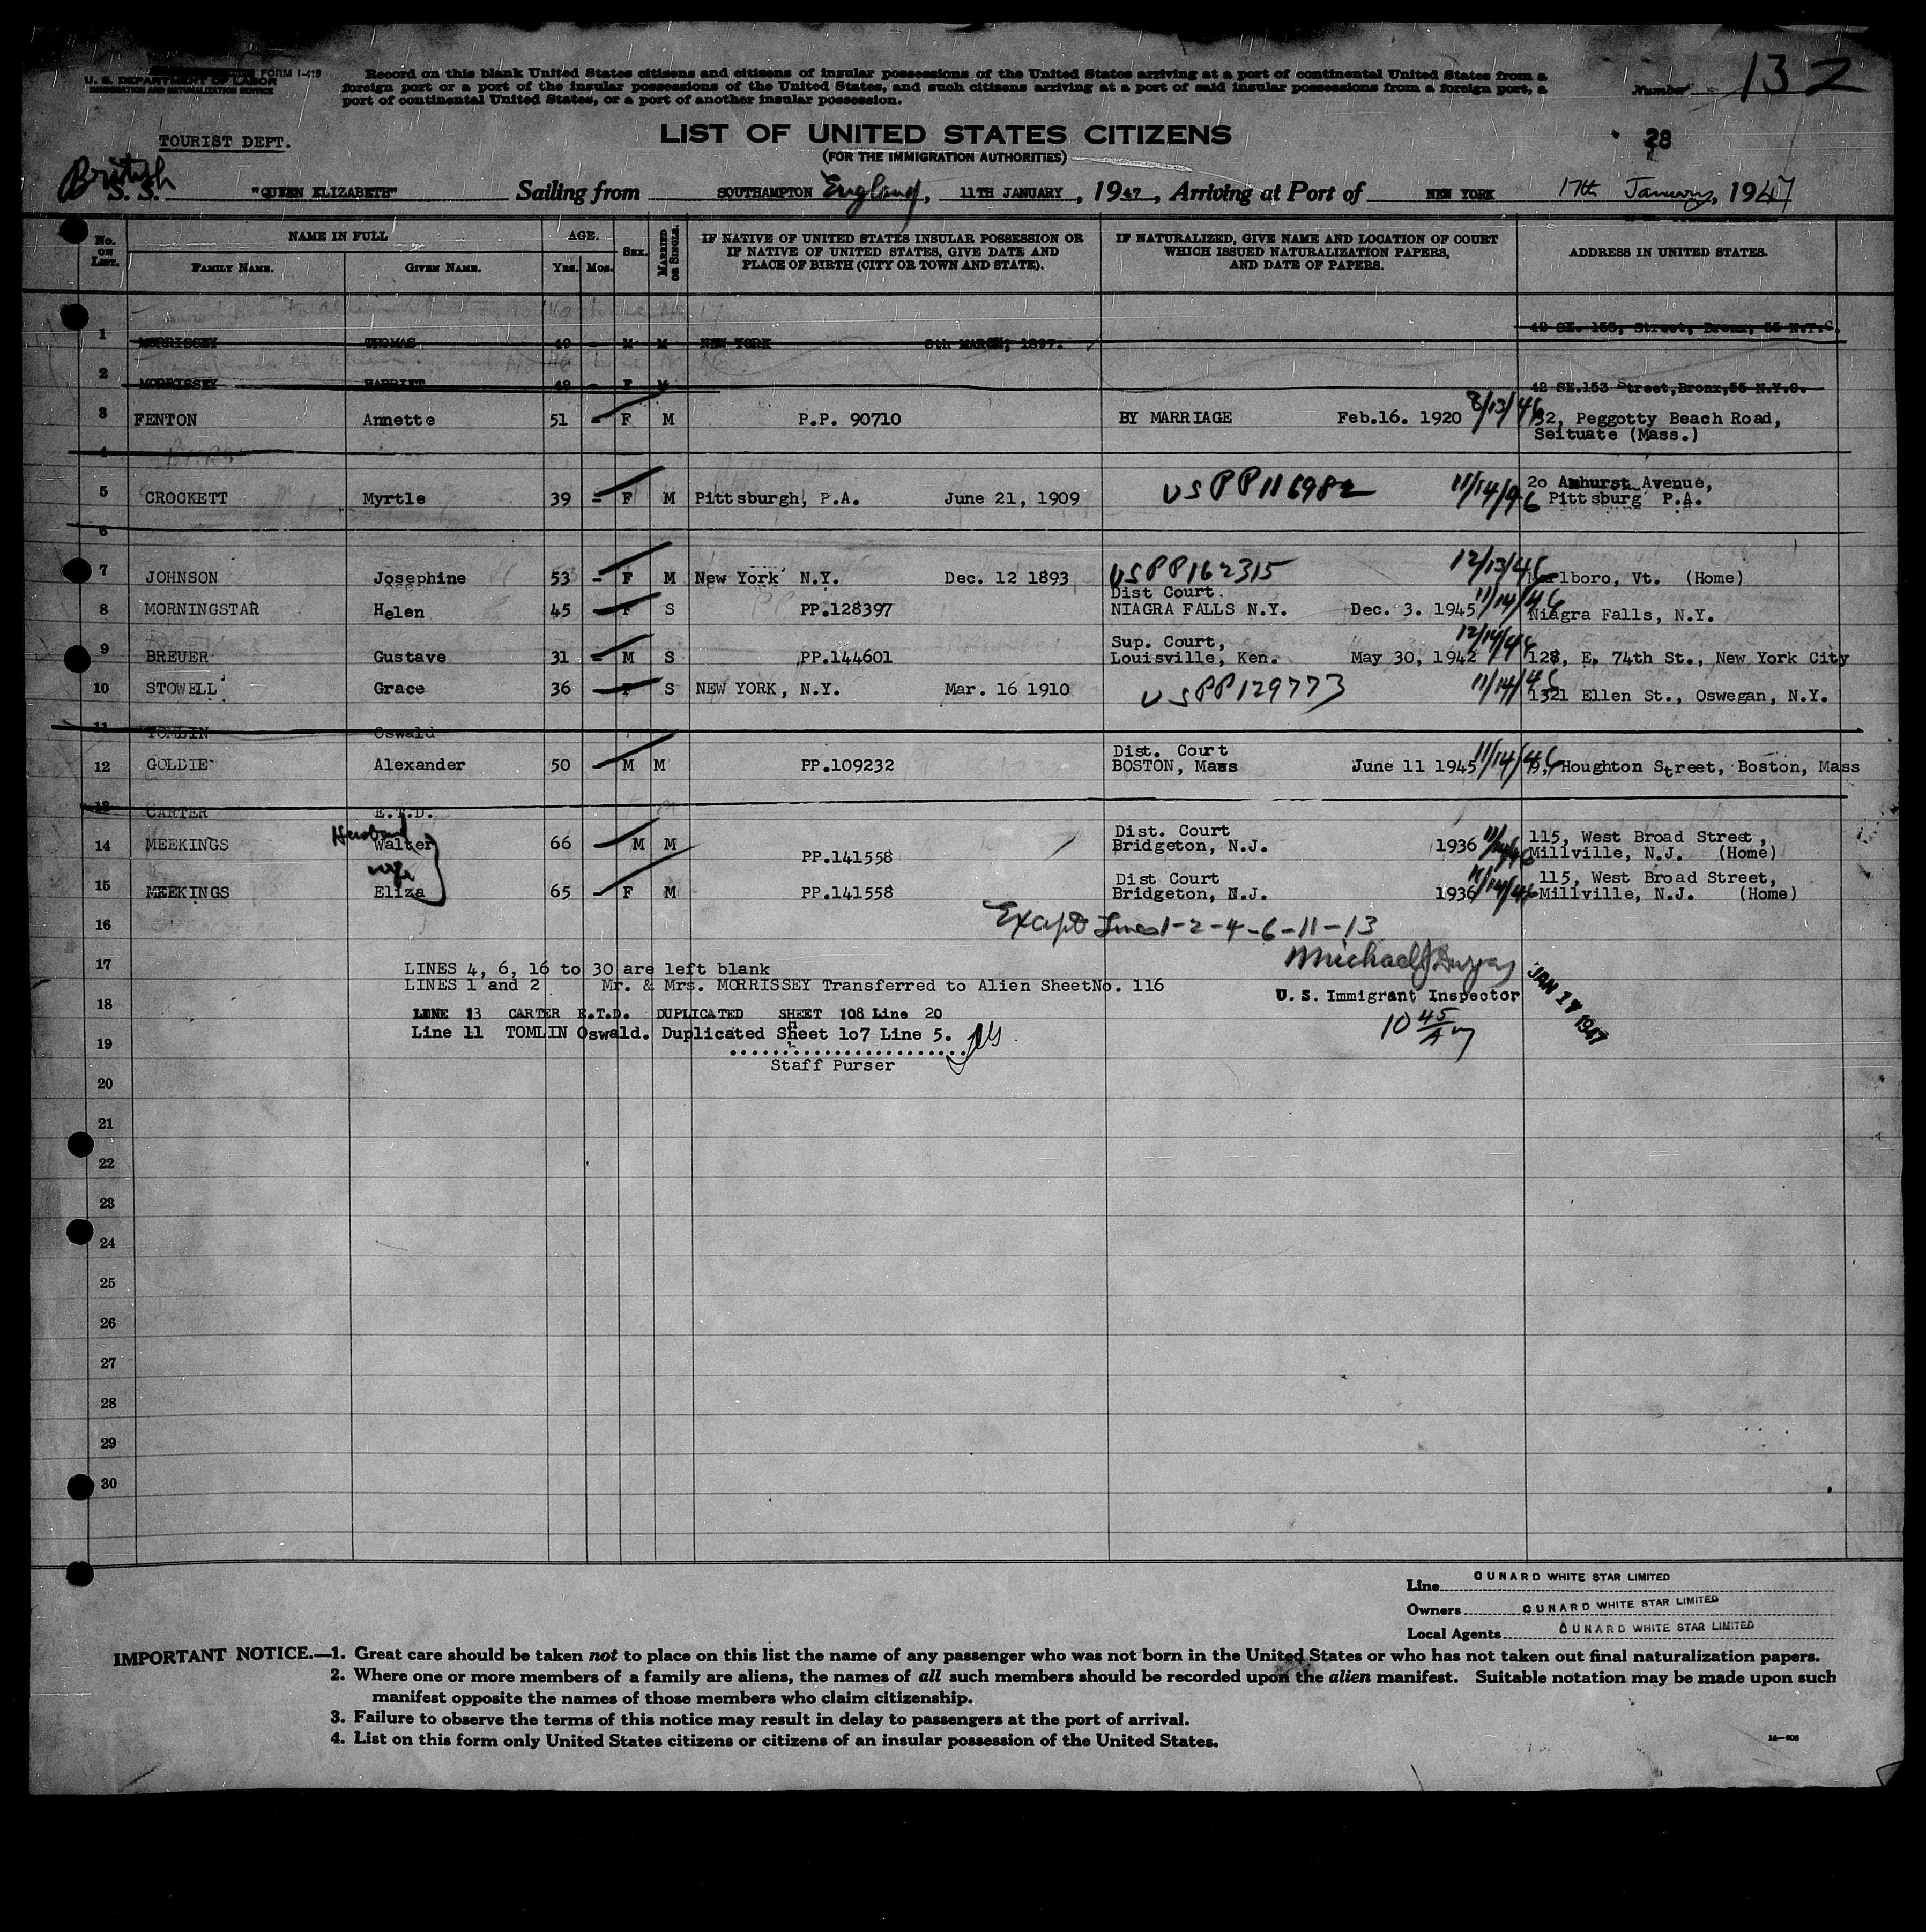 FORM I-419
U. S. DEPARTMENT OF LABOR
IMMIGRATION AND NATURALIZATION SERVICE
Record on this blank United States citizens and citizens of insular possessions of the United States arriving at a port of continental United States from a
foreign port or a port of the insular possessions of the United States, and such citizens arriving at a port of said insular possessions from a foreign port, a
port of continental United States, or a port of another insular possession.
Number 132
TOURIST DEPT.
LIST OF UNITED STATES CITIZENS
(FOR THE IMMIGRATION AUTHORITIES)
28
British
S. S. "QUEEN ELIZABETH" Sailing from SOUTHAMPTON England, 11TH JANUARY, 1947, Arriving at Port of NEW YORK 17th January, 1947
No. ON LIST. NAME IN FULL AGE. SEX. MARRIED OR SINGLE. IF NATIVE OF UNITED STATES INSULAR POSSESSION OR IF NATIVE OF UNITED STATES, GIVE DATE AND PLACE OF BIRTH (CITY OR TOWN AND STATE). IF NATURALIZED, GIVE NAME AND LOCATION OF COURT WHICH ISSUED NATURALIZATION PAPERS, AND DATE OF PAPERS. ADDRESS IN UNITED STATES.
FAMILY NAME. GIVEN NAME. Yrs. Mos.
1 MORRISSEY THOMAS 49 - M M NEW YORK 8th MARCH, 1897. 42 SE. 153, Street, Bronx, 55 N.Y.C.
2 MORRISSEY HARRIET 49 - F M 42 SE.153 Street,Bronx,55 N.Y.C.
3 FENTON Annette 51 - F M P.P. 90710 BY MARRIAGE Feb.16. 1920 8/13/46 132, Peggotty Beach Road,
Seituate (Mass.)
4
5 CROCKETT Myrtle 39 - F M Pittsburgh, P.A. June 21, 1909 US PP 116982 11/14/46 20 Amhurst Avenue,
Pittsburg P.A.
6
7 JOHNSON Josephine 53 - F M New York N.Y. Dec. 12 1893 US PP 162315 12/13/46 Marlboro, Vt. (Home)
8 MORNINGSTAR Helen 45 - F S PP.128397 Dist Court.
NIAGRA FALLS N.Y. Dec. 3. 1945 11/14/46 Niagra Falls, N.Y.
9 BREUER Gustave 31 - M S PP.144601 Sup. Court,
Louisville, Ken. May 30, 1942 12/14/46 128, E. 74th St., New York City
10 STOWELL Grace 36 - F S NEW YORK, N.Y. Mar. 16 1910 US PP 129773 11/14/46 1321 Ellen St., Oswegan, N.Y.
11 TOMLIN Oswald
12 GOLDIE Alexander 50 - M M PP.109232 Dist. Court
BOSTON, Mass June 11 1945 11/14/46 Houghton Street, Boston, Mass
13 CARTER E.T.D.
14 MEEKINGS Husband Walter 66 - M M PP.141558 Dist. Court
Bridgeton, N.J. 1936 11/14/46 115, West Broad Street,
Millville, N.J. (Home)
15 MEEKINGS wife Eliza 65 - F M PP.141558 Dist Court
Bridgeton, N.J. 1936 11/14/46 115, West Broad Street,
Millville, N.J. (Home)
16 Except Lines 1-2-4-6-11-13
17 LINES 4, 6, 16 to 30 are left blank
LINES 1 and 2 Mr. & Mrs. MORRISSEY Transferred to Alien SheetNo. 116
U. S. Immigrant Inspector
JAN 17 1947
18 LINE 13 CARTER E.T.D. DUPLICATED SHEET 108 Line 20
10 45 AM
19 Line 11 TOMLIN Oswald. Duplicated Sheet 1o7 Line 5.
Staff Purser
20
21
22
23
24
25
26
27
28
29
30
Line CUNARD WHITE STAR LIMITED
Owners CUNARD WHITE STAR LIMITED
Local Agents CUNARD WHITE STAR LIMITED
IMPORTANT NOTICE.—1. Great care should be taken not to place on this list the name of any passenger who was not born in the United States or who has not taken out final naturalization papers.
2. Where one or more members of a family are aliens, the names of all such members should be recorded upon the alien manifest. Suitable notation may be made upon such
manifest opposite the names of those members who claim citizenship.
3. Failure to observe the terms of this notice may result in delay to passengers at the port of arrival.
4. List on this form only United States citizens or citizens of an insular possession of the United States.